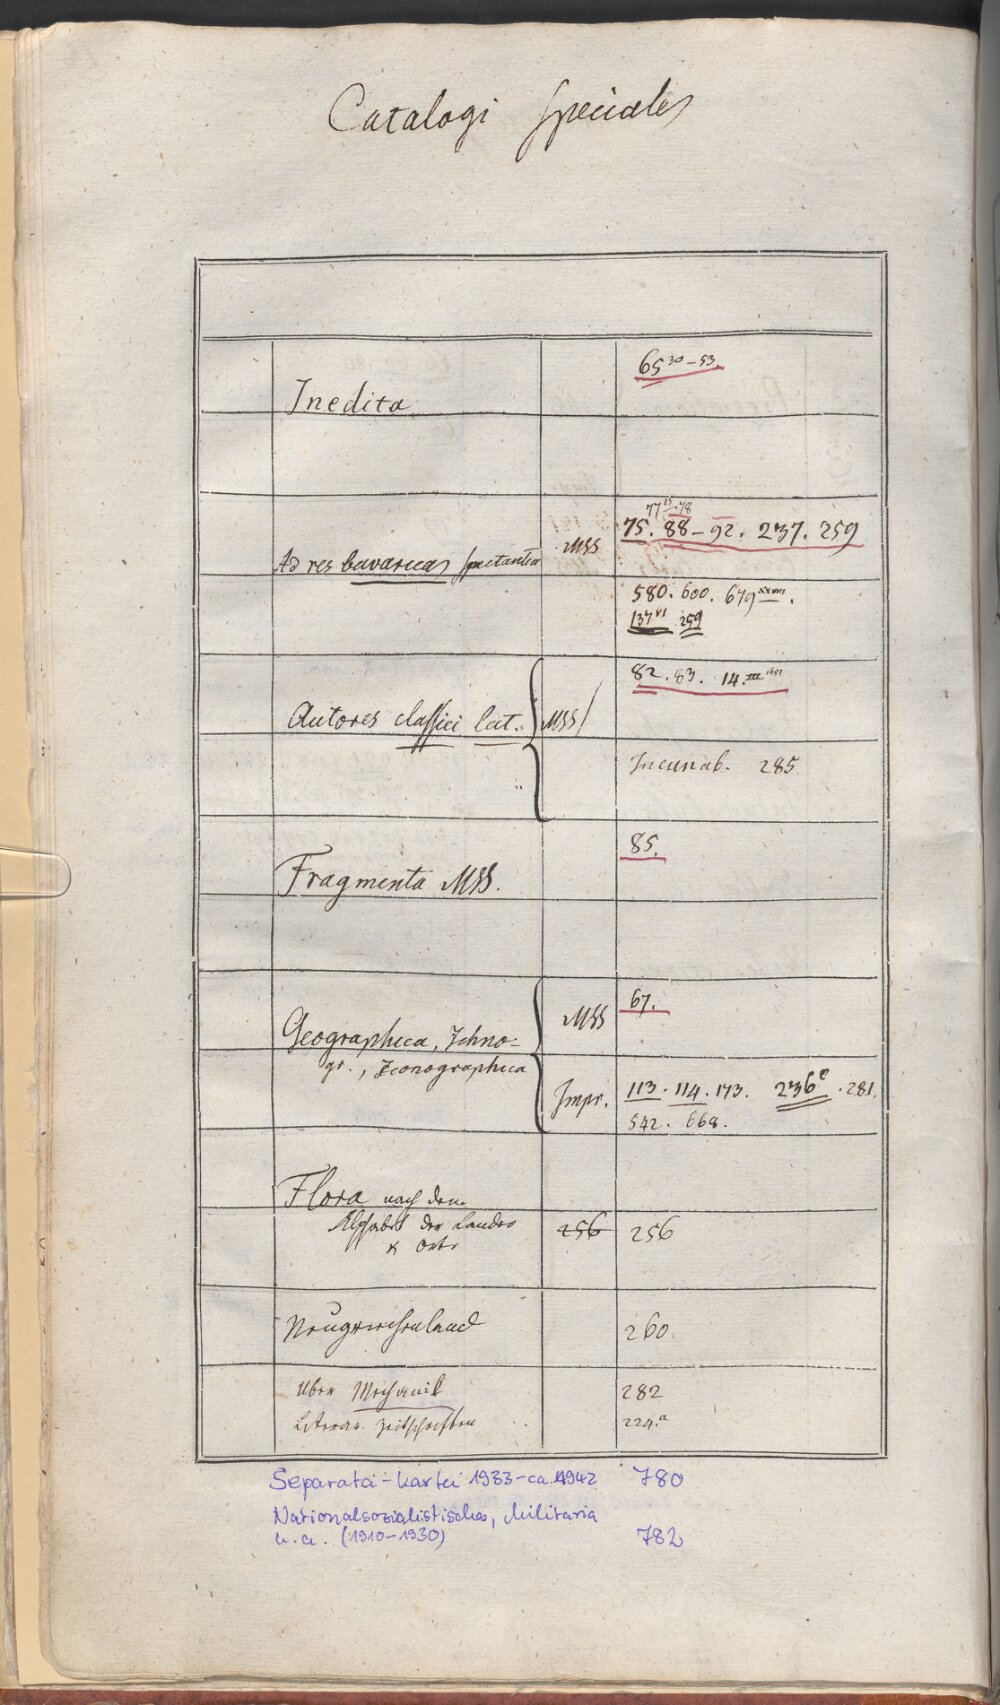 Catalogi speciales
65 30-53.
Inedita
77 15. 78
Ad res bavaricas spectantia MSS 75. 88-92. 237. 259
580. 600. 679 XXVIII.
137 VI 259
82. 83. 14. III 1651
Autores classici lat. MSS
Incunab. 285
85.
Fragmenta MSS.
67.
Geographica, Ichno- MSS
gr., Iconographica
Impr. 113. 114. 173. 236e. 281.
542. 668.
Flora nach dem
Alphabet der Länder 256 256
& Orte
Neugriechenland 260.
Über Mechanik 282
Literar. Zeitschriften 224.a
Separata-Kartei 1933-ca. 1942 780
Nationalsozialistisches, Militaria
u.a. (1910-1930) 782